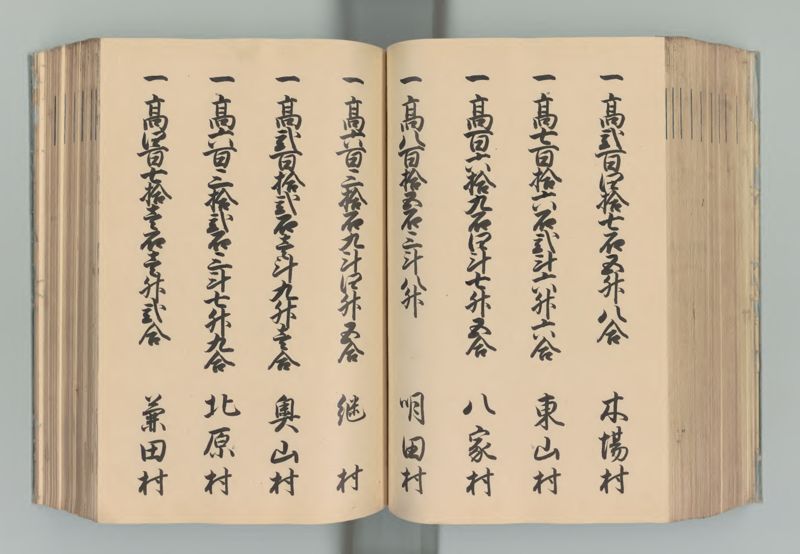 一 高弐百四拾七石五升八合 木場村
一 高七百拾六石弐斗六升六合 東山村
一 高百六拾九石四斗七升五合 八家村
一 高八百拾五石三斗八升 明田村
一 高六百三拾石九斗四升五合 継村
一 高弐百拾弐石壱斗九升壱合 奥山村
一 高六百三拾弐石三斗七升九合 北原村
一 高四百七拾壱石壱升弐合 兼田村